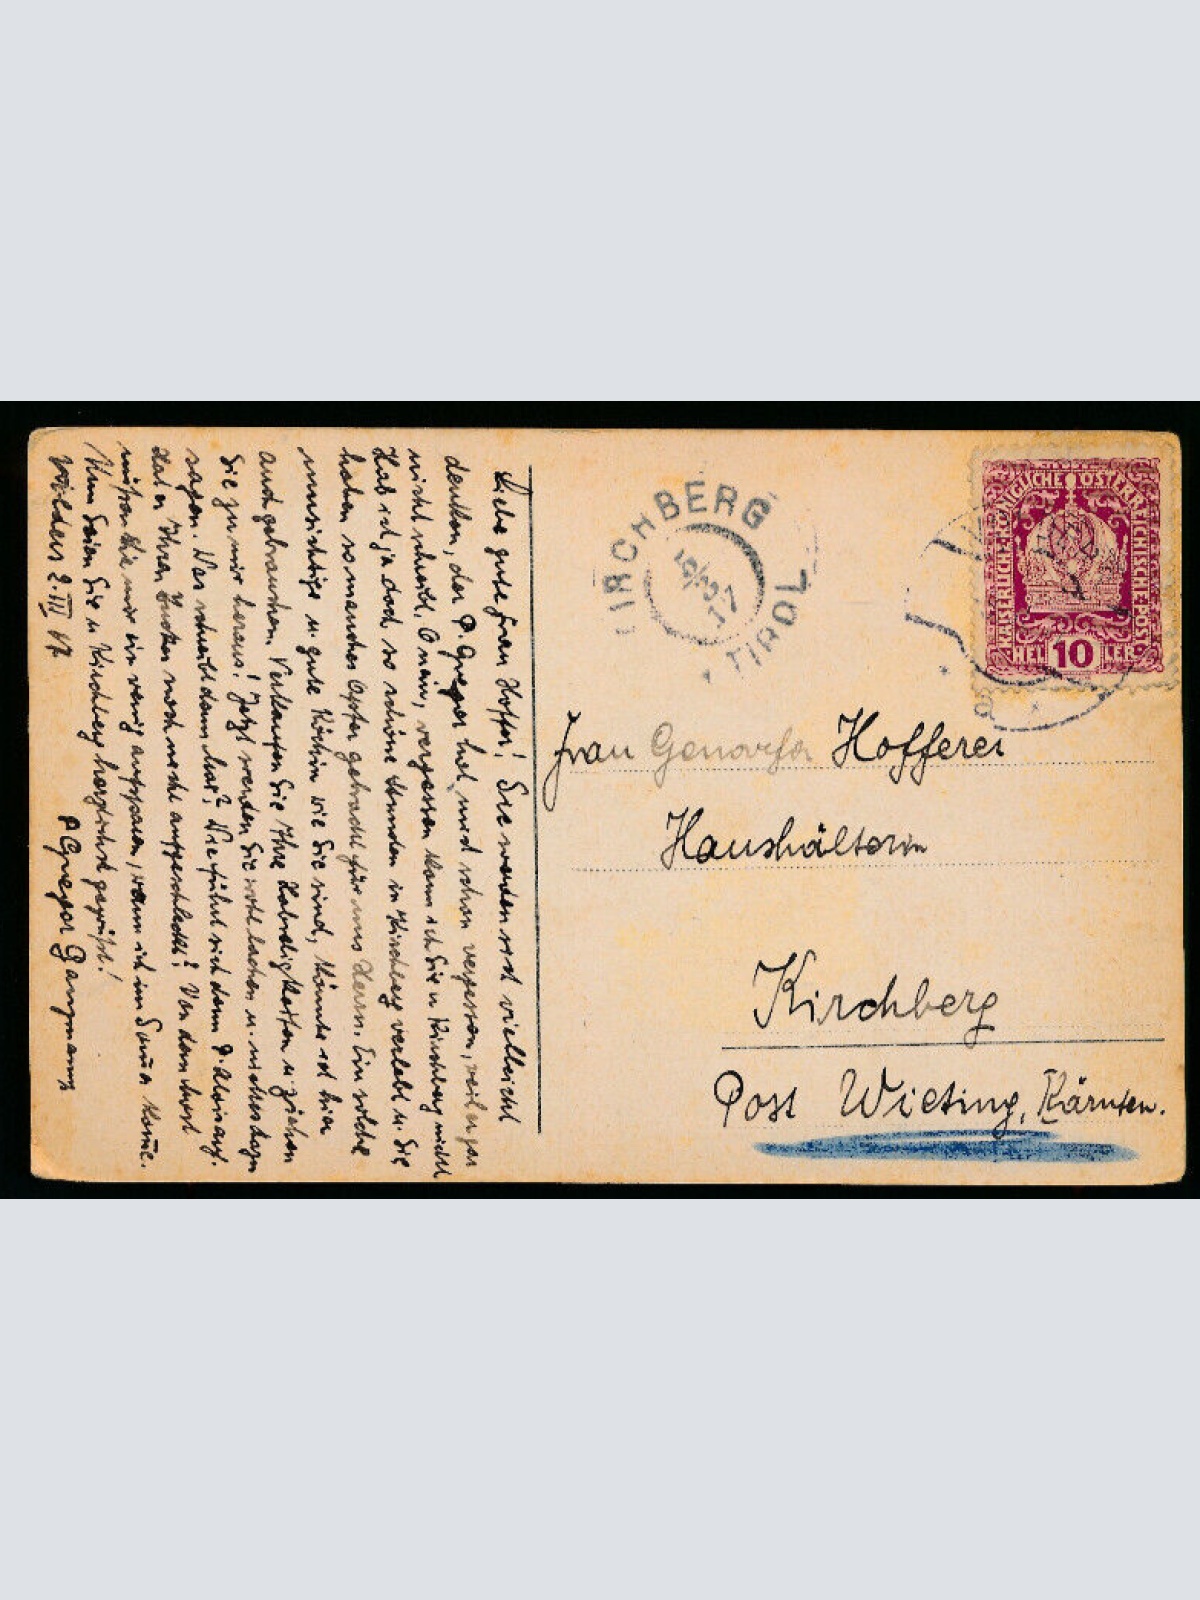 Liebe gute Frau Hofferer! Sie werden sich vielleicht
denken, der P. Gregor hat mich schon vergessen, weil er gar
nicht schreibt. O nein, vergessen kann ich Sie u Kirchberg nicht
Hab ich ja doch so schöne Stunden in Kirchberg verlebt u. Sie
haben so manches Opfer gebracht für uns Herrn. Ein solche
umsichtige u. gute Köchin wie Sie sind, könnte ich hier
auch gebrauchen. Verkaufen Sie Ihre Habseligkeiten u ziehen
Sie zu mir heraus! Jetzt werden Sie wohl lachen u. nichts dazu
sagen. Was schreibt denn? Wie führt sich denn P. Alois auf.
Hat er Ihren noch nicht aufgeschleckt? Von dem
müssen Sie mir ein wenig aufsparen, wann ich im Sommer kome.
Nun Seien Sie u Kirchberg herzlichst gegrüßt!
Volders 2. III 17
P Gregor
KIRCHBERG
TIROL
KAISERLICHE KÖNIGLICHE ÖSTERREICHISCHE POST
HELLER
10
Frau Genovefa Hofferer
Haushälterin
Kirchberg
Post Wieting, Kärnten.